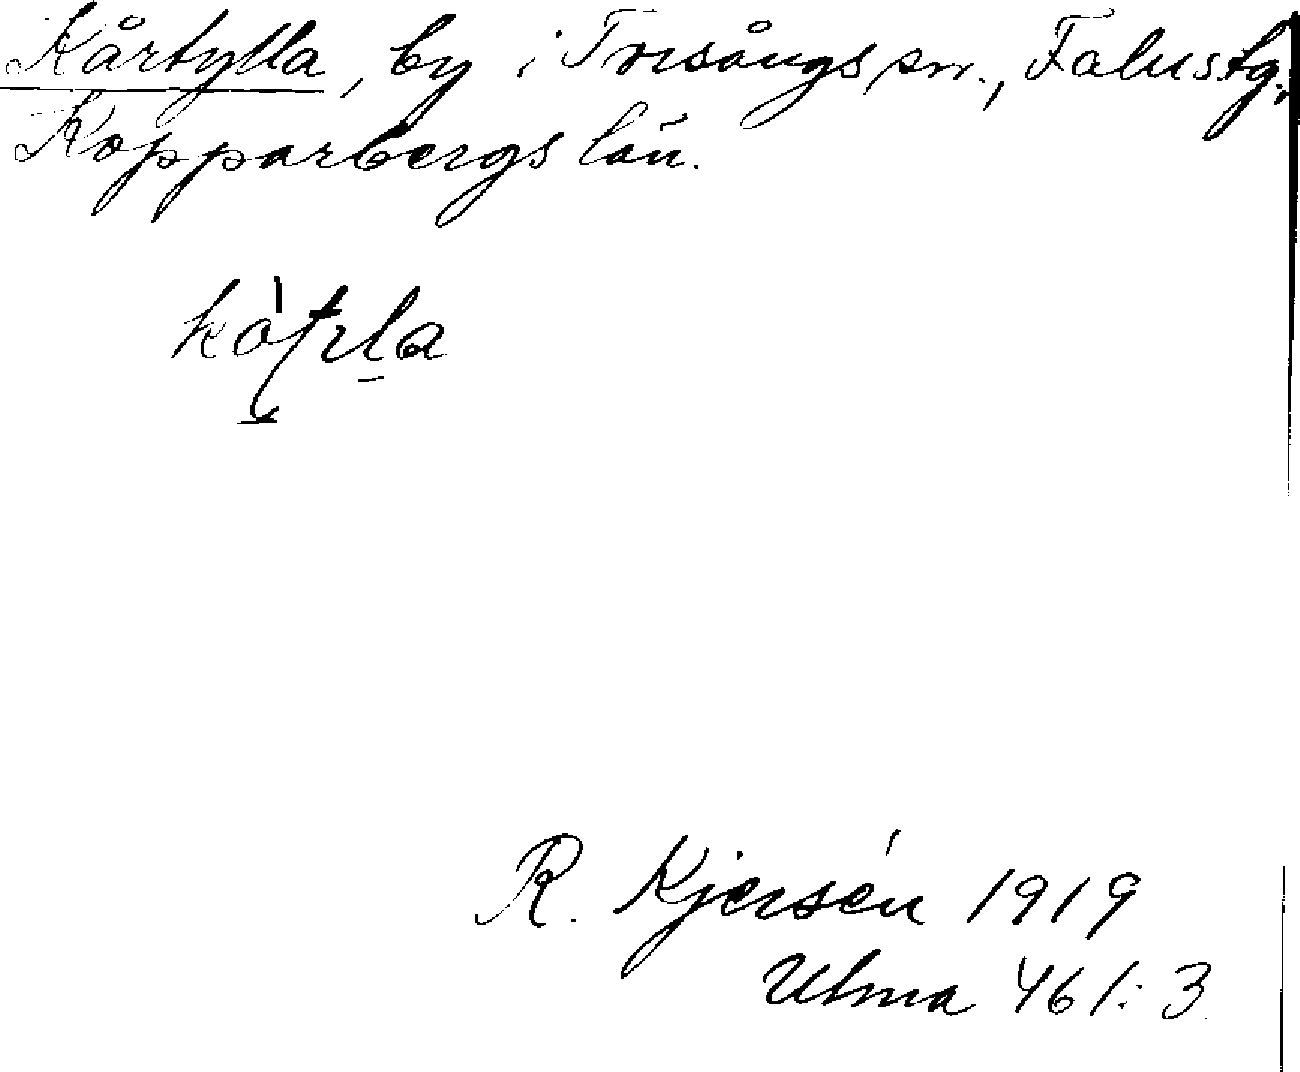 Kårtylla, by i Torsångs sn., Falu stg.,
Kopparbergs län.
R. Kjersén 1919
Ulma 461:3